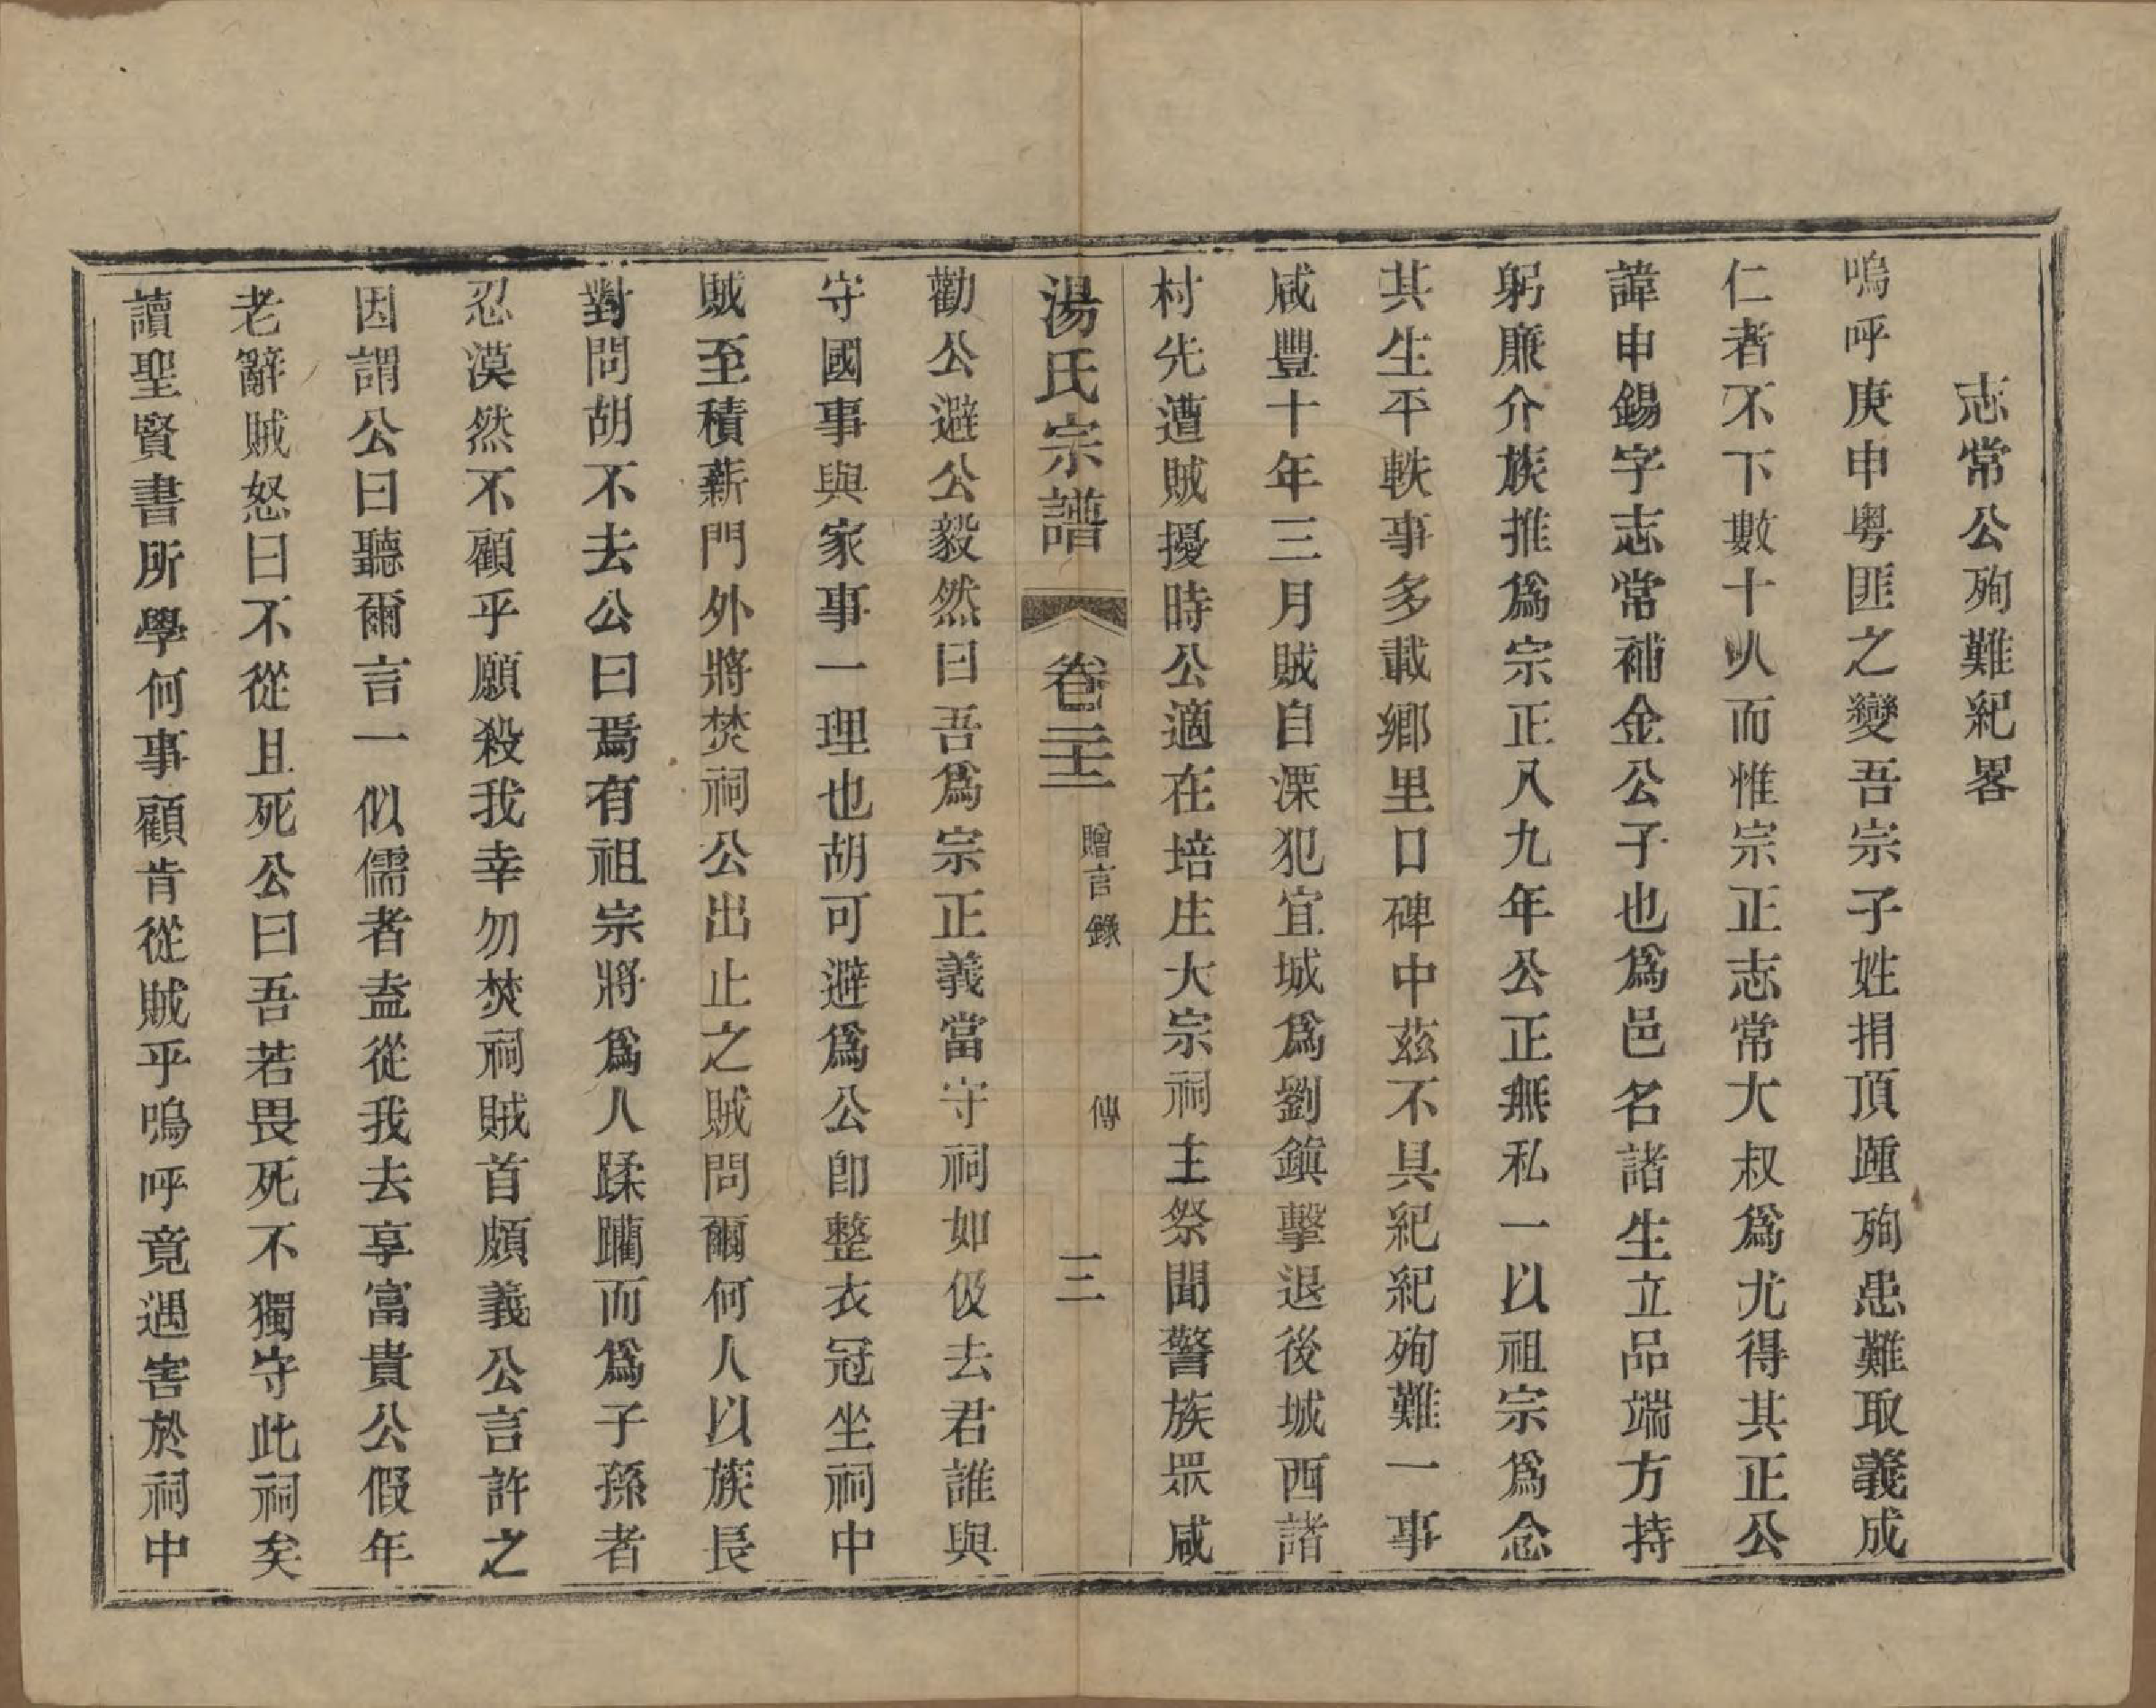 志常公殉難紀畧
嗚呼庚申粤匪之變吾宗子姓捐頂踵殉患難取義成
仁者不下數十人而惟宗正志常大叔爲尤得其正公
諱申錫字志常補金公子也爲邑名諸生立品端方持
躬廉介族推爲宗正八九年公正無私一以祖宗爲念
其生平軼事多載鄉里口碑中茲不具紀紀殉難一事
咸豐十年三月賊自溧犯宜城爲劉鎮擊退後城西諸
村先遭賊擾時公適在培庄大宗祠主祭聞警族眾咸
湯氏宗譜 卷二十二 贈言錄 傳 三
勸公避公毅然曰吾爲宗正義當守祠如伋去君誰與
守國事與家事一理也胡可避爲公卽整衣冠坐祠中
賊至積薪門外將焚祠公出止之賊問爾何人以族長
對問胡不去公曰焉有祖宗將爲人蹂躪而爲子孫者
忍漠然不顧乎願殺我幸勿焚祠賊首頗義公言許之
因謂公曰聽爾言一似儒者盍從我去享富貴公假年
老辭賊怒曰不從且死公曰吾若畏死不獨守此祠矣
讀聖賢書所學何事顧肯從賊乎嗚呼竟遇害於祠中